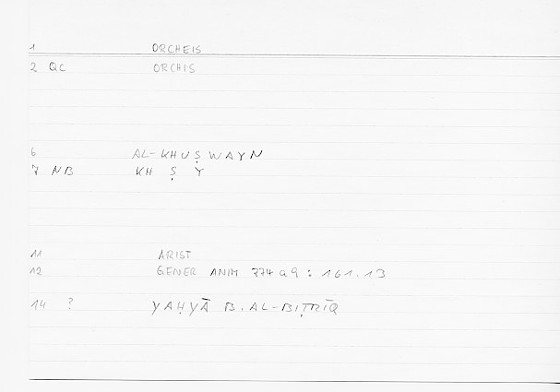 1 ORCHEIS
2 QC ORCHIS
6 AL-KHUṢWAYN
7 NB KH Ṣ Y
11 ARIST
12 GENER ANIM 774a9 : 161.13
14 ? YAḤYĀ B. AL-BIṬRĪQ